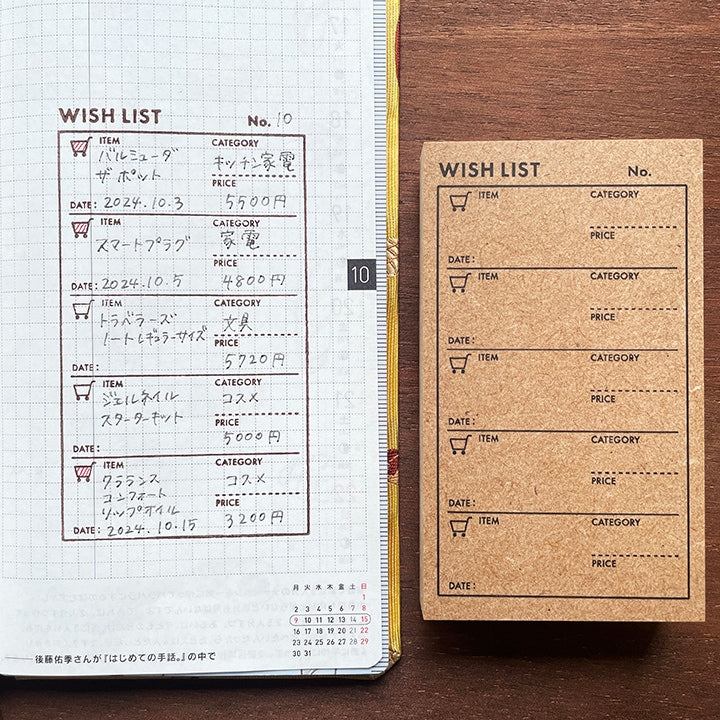 WISH LIST No. 10
ITEM CATEGORY
バルミューダ
ザ ポット キッチン家電
PRICE
DATE: 2024.10.3 5500円
ITEM CATEGORY
スマートプラグ 家電
PRICE
DATE: 2024.10.5 4800円
ITEM CATEGORY
トラベラーズ
ノートレギュラーサイズ 文具
PRICE
DATE: 5720円
ITEM CATEGORY
ジェルネイル コスメ
スターターキット
PRICE
DATE: 5000円
ITEM CATEGORY
クランス コスメ
コンフォート
リップオイル
PRICE
DATE: 2024.10.15 3200円
10
月 火 水 木 金 土 日
1
2 3 4 5 6 7 8
9 10 11 12 13 14 15
16 17 18 19 20 21 22
23 24 25 26 27 28 29
30 31
——後藤佑季さんが『はじめての手話。』の中で
WISH LIST No.
ITEM CATEGORY
PRICE
DATE:
ITEM CATEGORY
PRICE
DATE:
ITEM CATEGORY
PRICE
DATE:
ITEM CATEGORY
PRICE
DATE:
ITEM CATEGORY
PRICE
DATE: